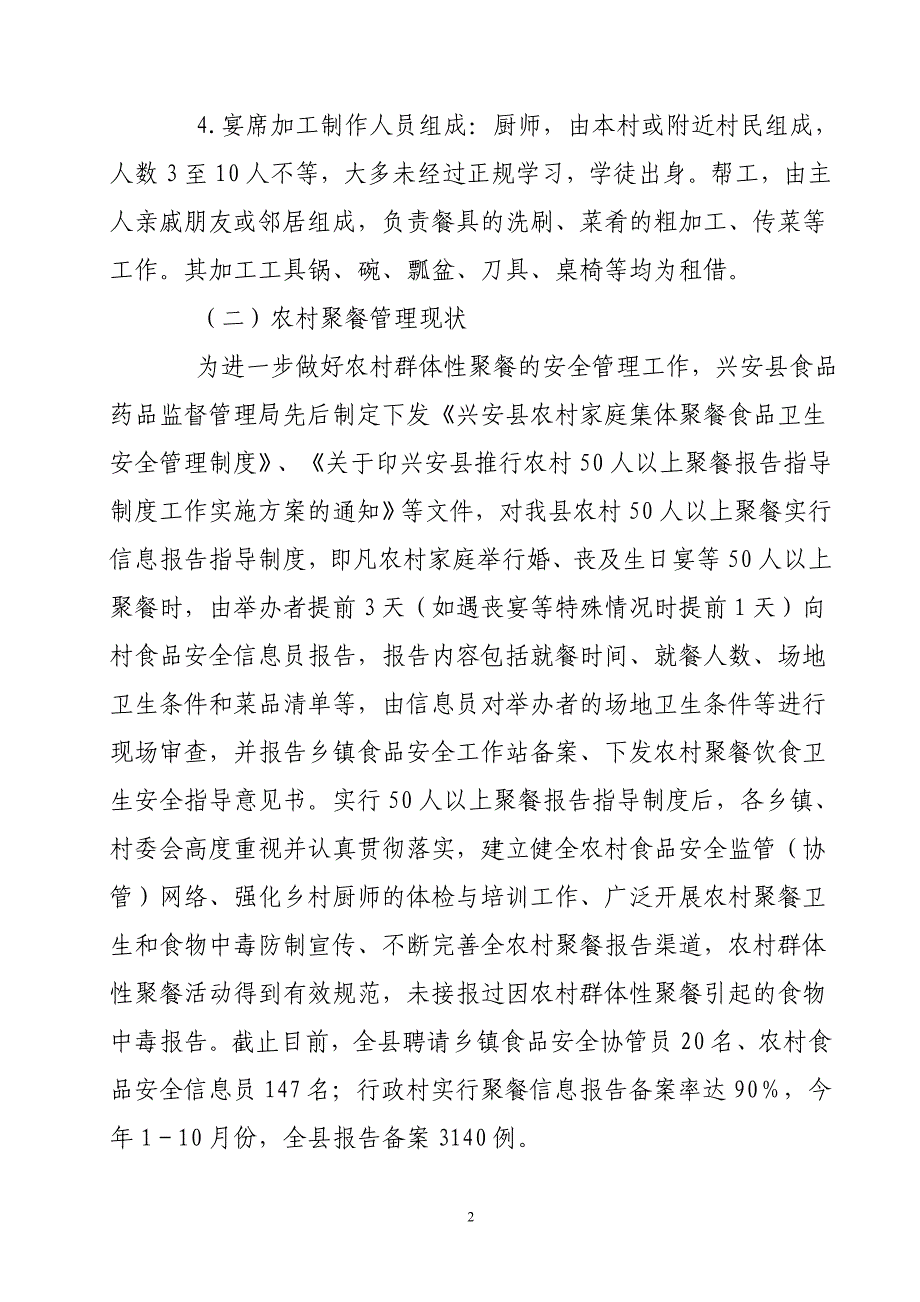 4.宴席加工制作人员组成：厨师，由本村或附近村民组成，
人数 3 至 10 人不等，大多未经过正规学习，学徒出身。帮工，由主
人亲戚朋友或邻居组成，负责餐具的洗刷、菜肴的粗加工、传菜等
工作。其加工工具锅、碗、瓢盆、刀具、桌椅等均为租借。
（二）农村聚餐管理现状
为进一步做好农村群体性聚餐的安全管理工作，兴安县食品
药品监督管理局先后制定下发《兴安县农村家庭集体聚餐食品卫生
安全管理制度》、《关于印兴安县推行农村 50 人以上聚餐报告指导
制度工作实施方案的通知》等文件，对我县农村 50 人以上聚餐实行
信息报告指导制度，即凡农村家庭举行婚、丧及生日宴等 50 人以上
聚餐时，由举办者提前 3 天（如遇丧宴等特殊情况时提前 1 天）向
村食品安全信息员报告，报告内容包括就餐时间、就餐人数、场地
卫生条件和菜品清单等，由信息员对举办者的场地卫生条件等进行
现场审查，并报告乡镇食品安全工作站备案、下发农村聚餐饮食卫
生安全指导意见书。实行 50 人以上聚餐报告指导制度后，各乡镇、
村委会高度重视并认真贯彻落实，建立健全农村食品安全监管（协
管）网络、强化乡村厨师的体检与培训工作、广泛开展农村聚餐卫
生和食物中毒防制宣传、不断完善全农村聚餐报告渠道，农村群体
性聚餐活动得到有效规范，未接报过因农村群体性聚餐引起的食物
中毒报告。截止目前，全县聘请乡镇食品安全协管员 20 名、农村食
品安全信息员 147 名；行政村实行聚餐信息报告备案率达 90%，今
年 1－10 月份，全县报告备案 3140 例。
2